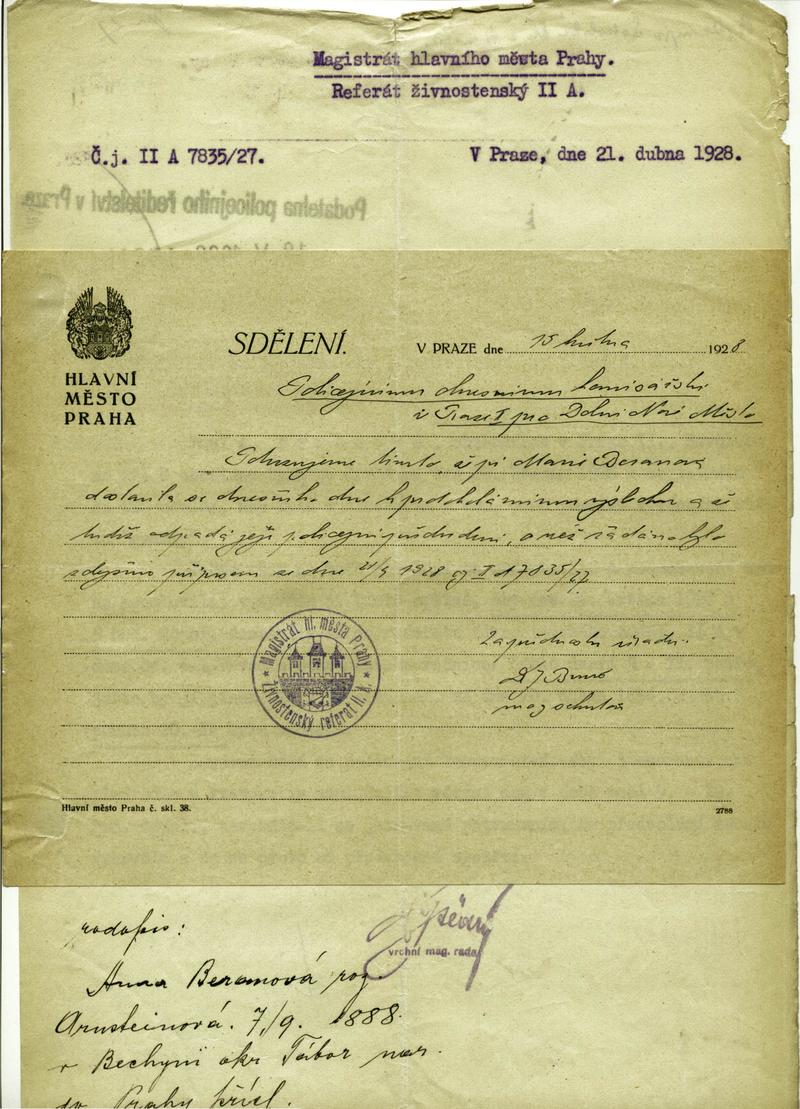 Magistrát hlavního města Prahy.
Referát živnostenský II A.
Č.j. II A 7835/27.
V Praze, dne 21. dubna 1928.
Podatelna policejního ředitelství v Praze
HLAVNÍ
MĚSTO
PRAHA
SDĚLENÍ.
V PRAZE dne 15 května 1928
Policejnímu okresnímu komisařství
v Praze I pro Dolní Nové Město
Oznamujeme tímto, že pí Marie Beranová
dostavila se dnešního dne k protokolárnímu výslechu a že
tudíž odpadá její policejní předvedení, o něž žádáno bylo
zdejším přípisem ze dne 21/4 1928 čj II A 7835/27
Za přednostu úřadu:
Magistrát hl. města Prahy
Živnostenský referát II. A.
Hlavní město Praha č. skl. 38.
2788
vrchní mag. rada
rodopis:
Anna Beranová roz.
Arnsteinová. 7/9. 1888.
v Bechyni okr Tábor nar.
do Prahy přísl.